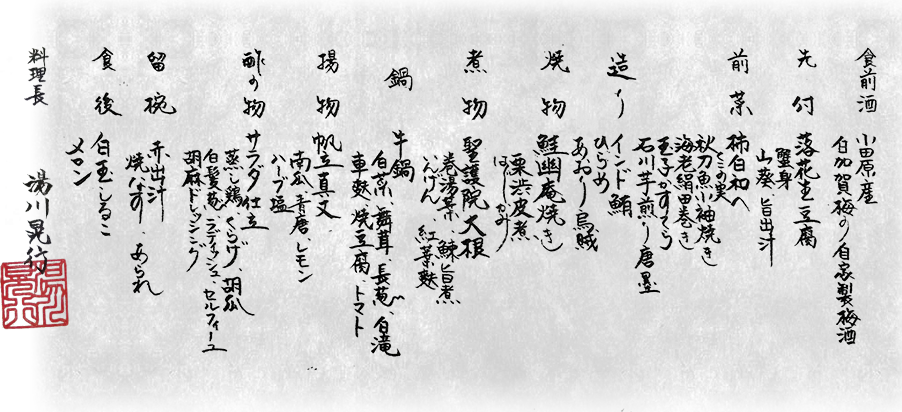 食前酒
小田原産
白加賀梅の自家製梅酒
先付
落花生豆腐
蟹身
山葵 旨出汁
前菜
柿白和へ
くこの実
秋刀魚小袖焼き
海老絹田巻き
玉子かすてら
石川芋煎り唐墨
造り
インド鮪
ひらめ
あおり烏賊
焼物
鮭幽庵焼き
栗渋皮煮
はじかみ
煮物
聖護院大根
巻湯葉、鰊旨煮
いんげん、紅葉麩
鍋
牛鍋
白菜、舞茸、長葱、白滝
車麩、焼豆腐、トマト
揚物
帆立真丈
南瓜、青唐、レモン
ハーブ塩
酢の物
サラダ仕立
蒸し鶏、くらげ、胡瓜
白髪葱、ラディッシュ、セルフィーユ
胡麻ドレッシング
留椀
赤出汁
焼なす、あられ
食後
白玉しるこ
メロン
料理長
湯川晃